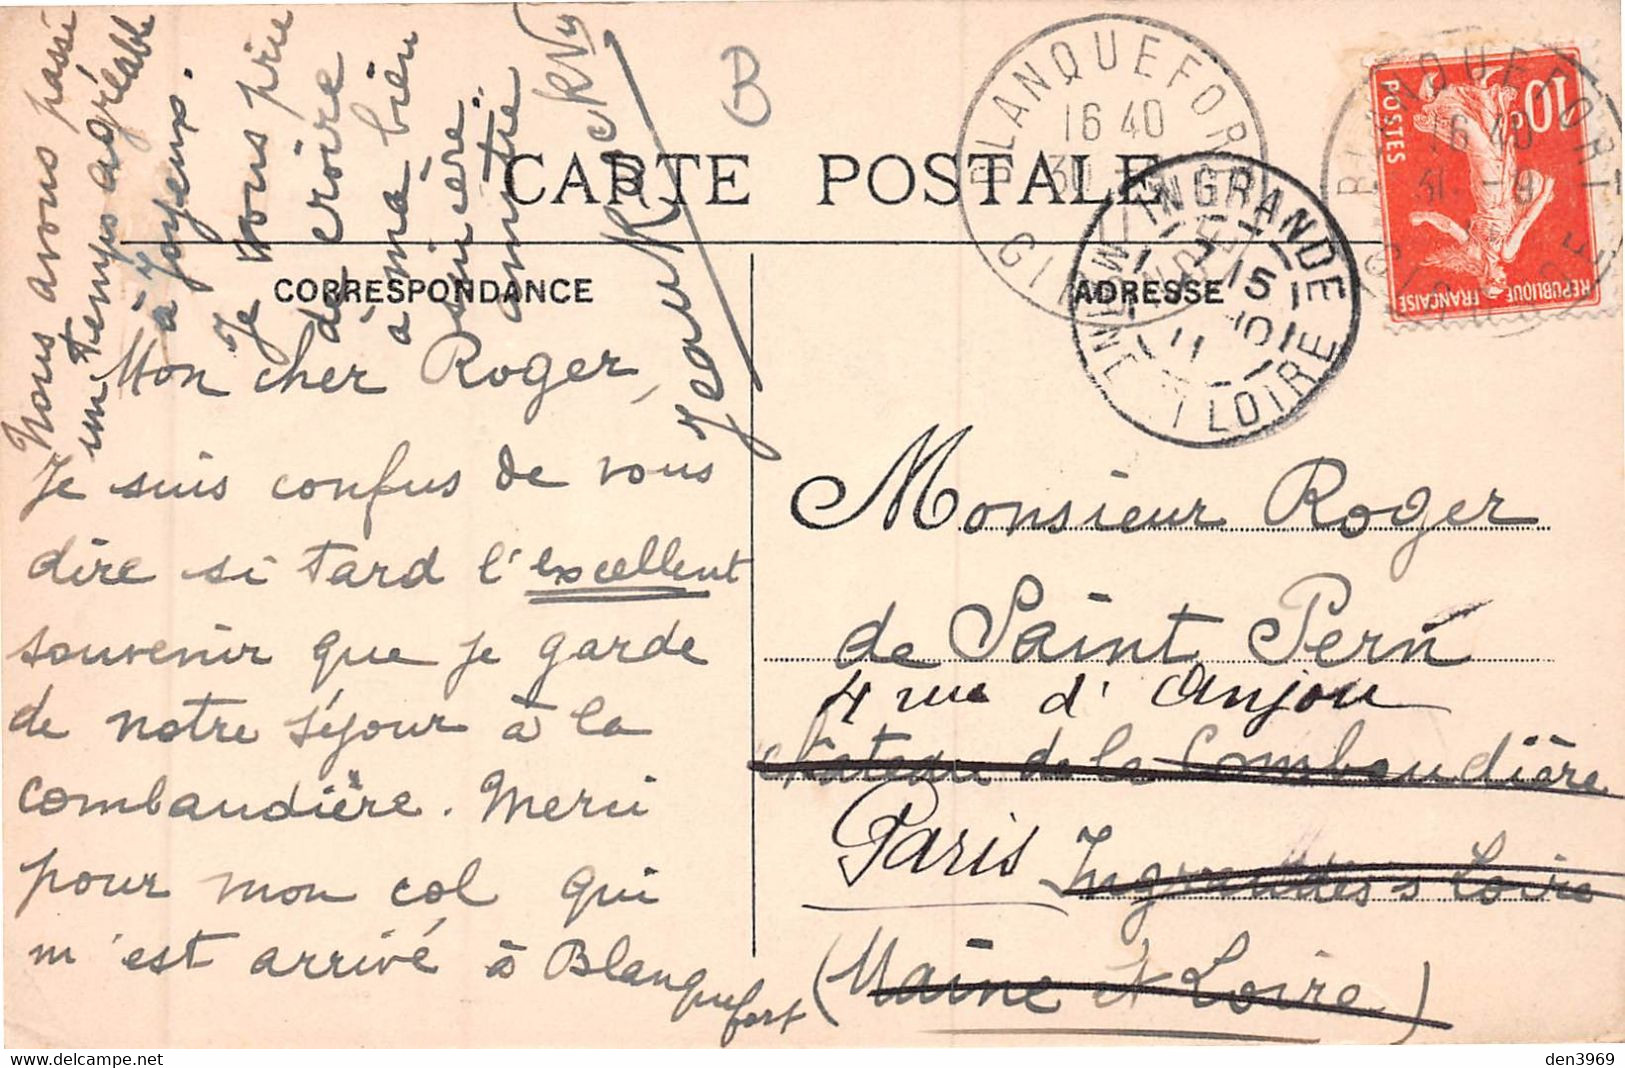 CARTE POSTALE
CORRESPONDANCE
ADRESSE
Mon cher Roger,
Je suis confus de vous
dire si tard l'excellent
souvenir que je garde
de notre séjour à la
combaudière. Merci
pour mon col qui
m'est arrivé à Blanquefort
Nous avons passé
un temps agréable
à Joyeux.
Je vous prie
de croire
à ma bien
sincère
amitié
Jean
Monsieur Roger
de Saint Pern
4 rue d'Anjou
château de la Combaudière
Paris
Ingrandes s Loire
(Maine et Loire)
BLANQUEFORT
16 40
GIRONDE
INGRANDE
MAINE ET LOIRE
15
11
BLANQUEFORT
16 40
31 - 9
10c
POSTES
REPUBLIQUE FRANCAISE
delcampe.net
den3969